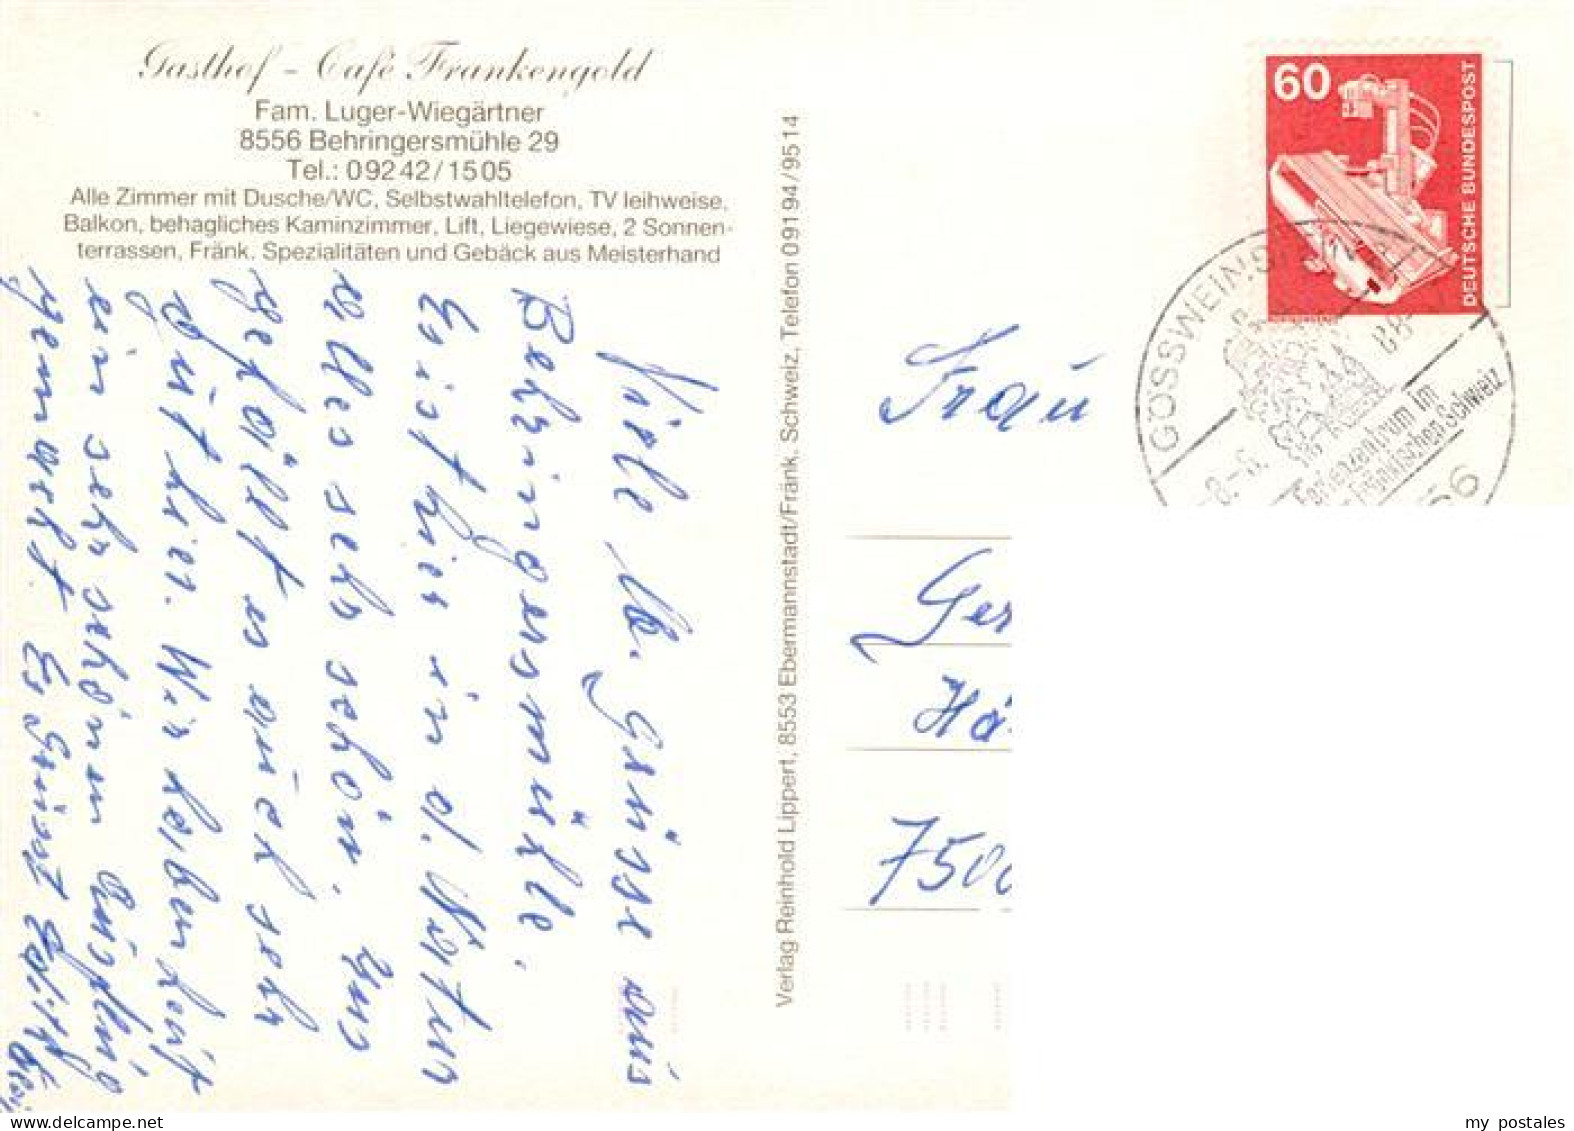 Gasthof - Café Frankengold
Fam. Luger-Wiegärtner
8556 Behringersmühle 29
Tel.: 09242/1505
Alle Zimmer mit Dusche/WC, Selbstwahltelefon, TV leihweise,
Balkon, behagliches Kaminzimmer, Lift, Liegewiese, 2 Sonnen-
terrassen, Fränk. Spezialitäten und Gebäck aus Meisterhand
Viele lb. Grüsse aus
Behringersmühle.
Es ist hier in d. Natur
alles sehr schön. Uns
gefällt es auch sehr
gut hier. Wir haben heut
ein sehr schönen Ausflug
gemacht. Es Grüsst Edith
Verlag Reinhold Lippert, 8553 Ebermannstadt/Fränk. Schweiz, Telefon 09194/9514
60
DEUTSCHE BUNDESPOST
GÖSSWEINSTEIN
88-
Ferienzentrum im
Fränkischen Schweiz
56
Frau
Ger
Hä
7500
my postales